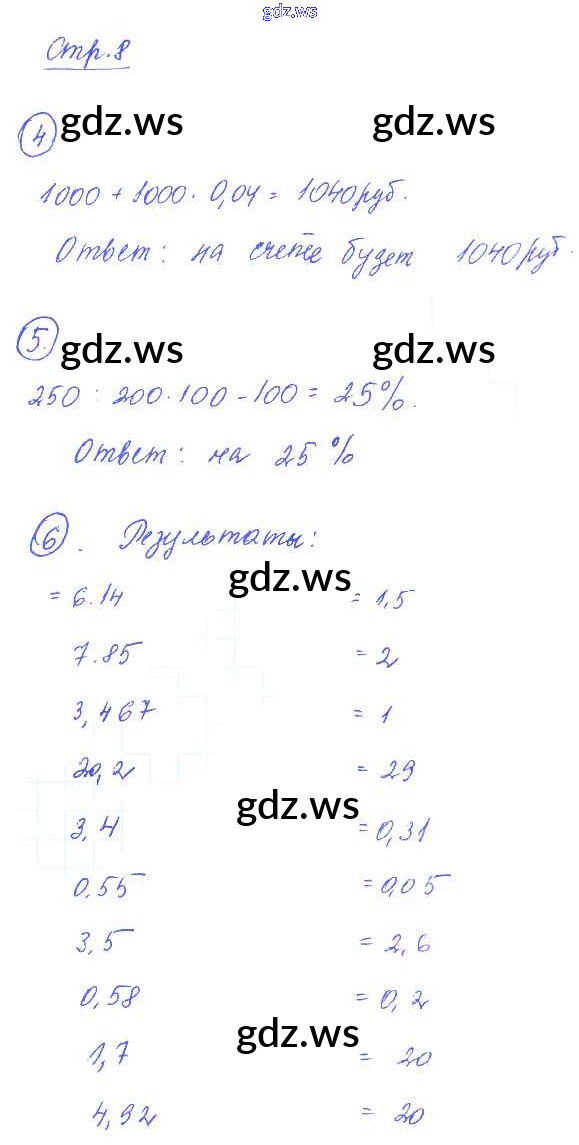 gdz.ws
Стр. 8
4 gdz.ws gdz.ws
1000 + 1000 · 0,04 = 1040 руб.
Ответ: на счете будет 1040 руб.
5. gdz.ws gdz.ws
250 : 200 · 100 - 100 = 25%.
Ответ: на 25 %
6. Результаты:
gdz.ws
= 6.14 = 1,5
7.85 = 2
3,467 = 1
20,2 = 29
gdz.ws
3,4 = 0,31
0.55 = 0,05
3,5 = 2,6
0,58 = 0,2
gdz.ws
1,7 = 20
4,92 = 20